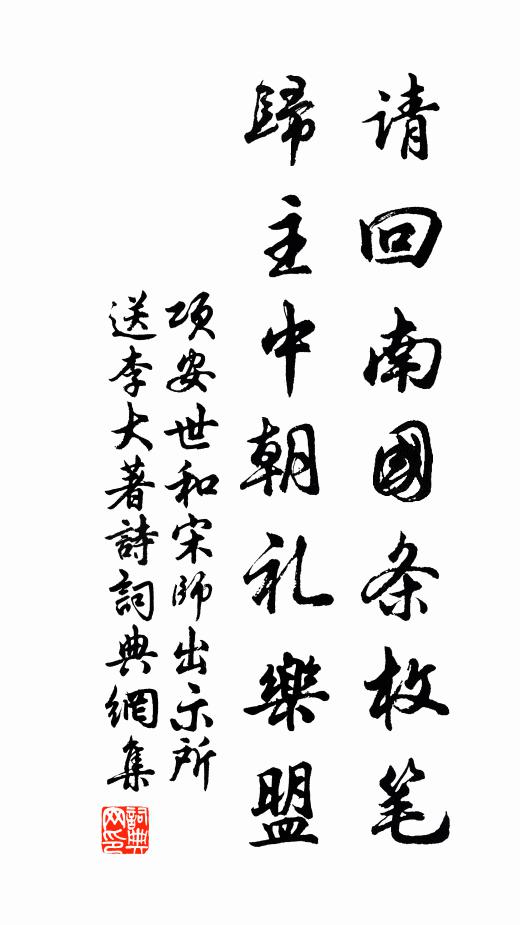 请回南國条枚笔
歸主中朝礼樂盟
项安世和宋师出示所
送李大著詩詞典網集
詞典网印